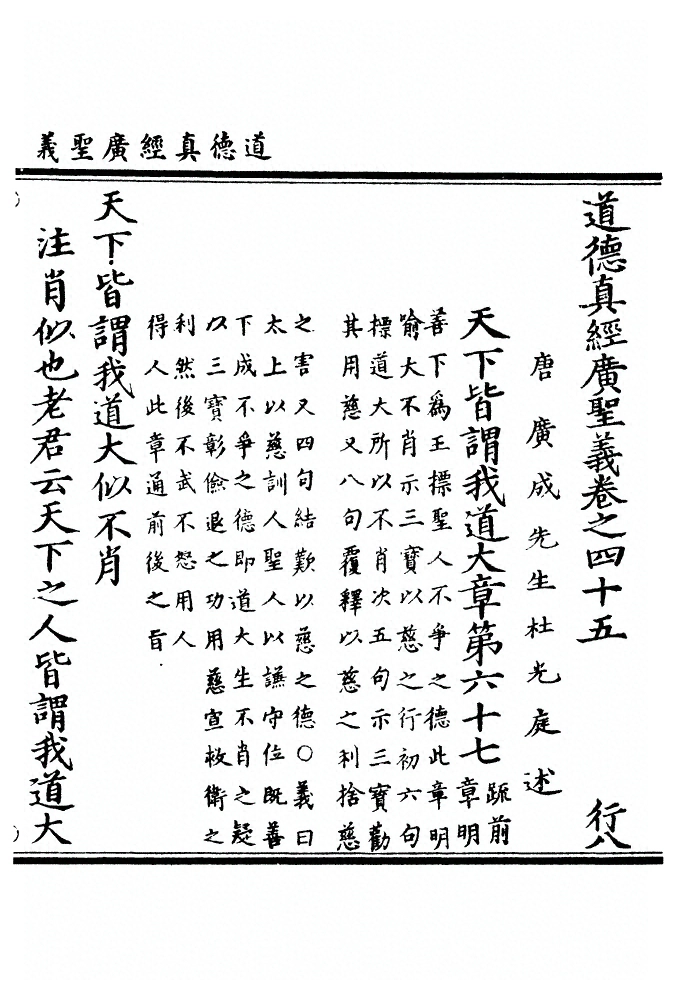 道德真經廣聖義
道德真經廣聖義卷之四十五 行八
唐廣成先生杜光庭述
天下皆謂我道大章第六十七 䟽前
章明
善下為王標聖人不爭之德此章明
喻大不肖示三寶以慈之行初六句
標道大所以不肖次五句示三寶勸
其用慈又八句覆釋以慈之利捨慈
之害又四句結歎以慈之德○義曰
太上以慈訓人聖人以謙守位既善
下成不爭之德即道大生不肖之疑
以三寶彰儉退之功用慈宣救衛之
利然後不武不怒用人
得人此章通前後之旨
天下皆謂我道大似不肖
注肖似也老君云天下之人皆謂我道大